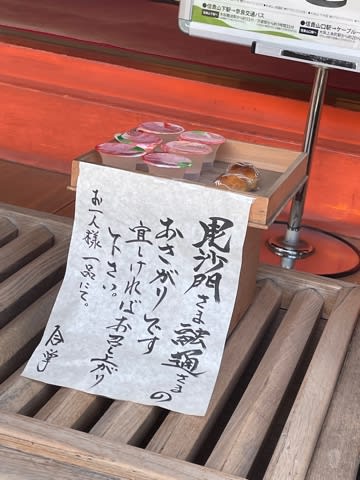 信貴山下駅→奈良交通バス
信貴山口駅→ケーブル
毘沙門さま融通さまの
おさがりです
宜しければお召上がり
下さい。
お一人様一品にて。
合掌